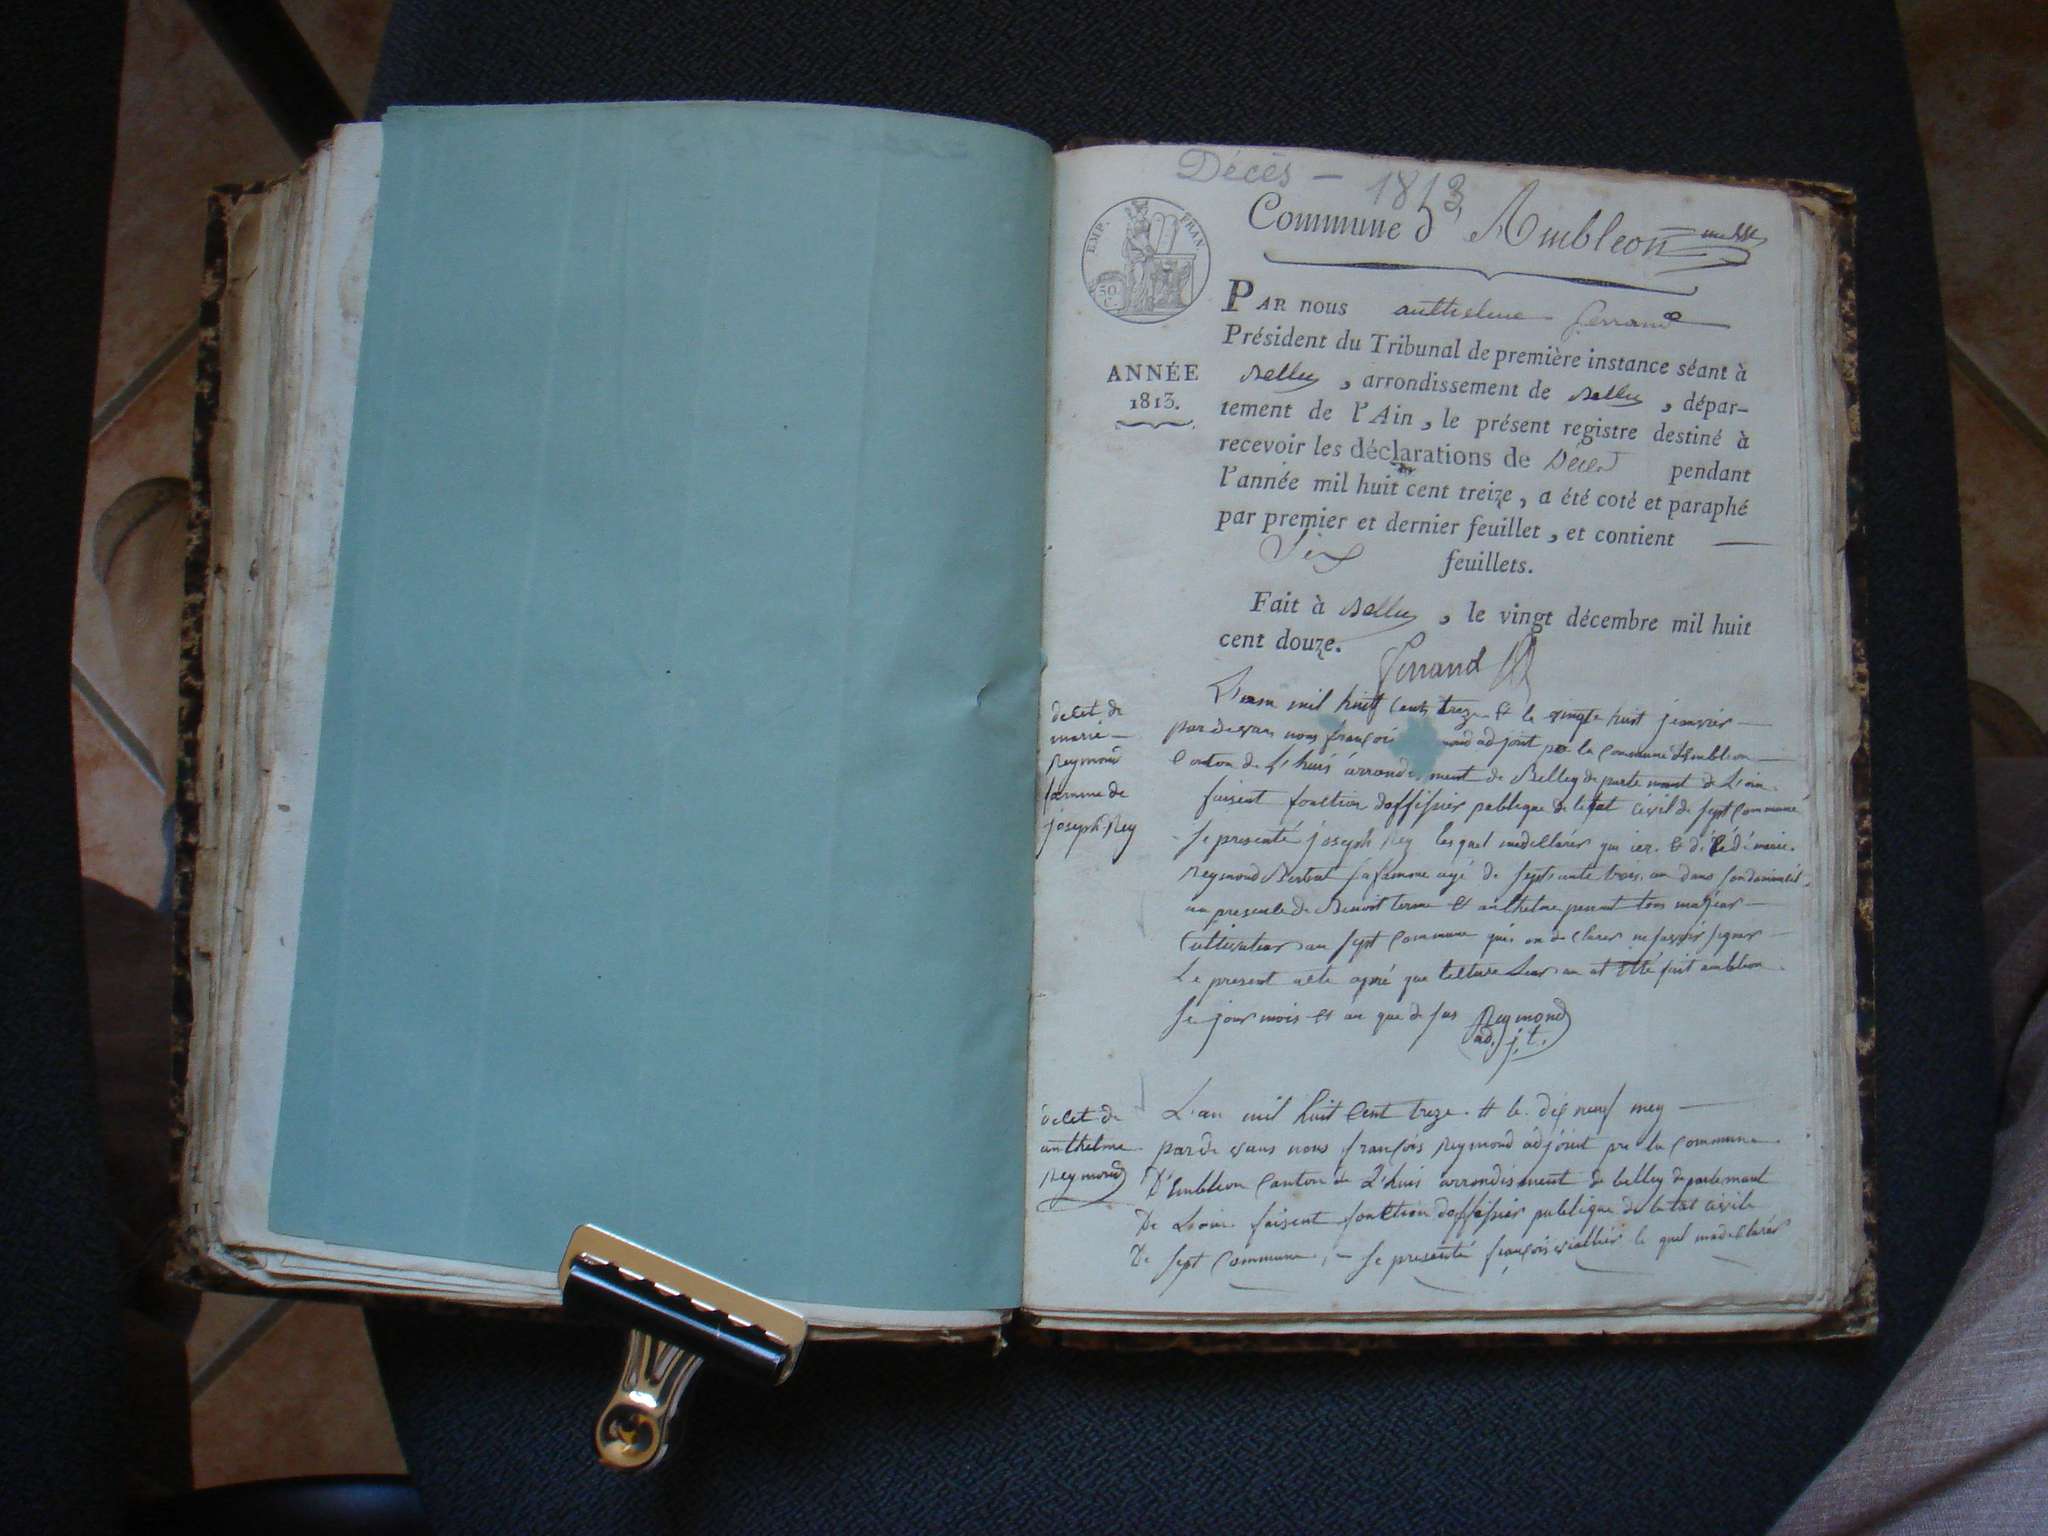 Décès - 1813
EMP. FRAN.
50
C.
Commune d'Ambleon
PAR nous anthelme ferrand
Président du Tribunal de première instance séant à
Belley, arrondissement de Belley, dépar-
tement de l'Ain, le présent registre destiné à
recevoir les déclarations de Décès pendant
l'année mil huit cent treize, a été coté et paraphé
par premier et dernier feuillet, et contient
Six feuillets.
Fait à Belley, le vingt décembre mil huit
cent douze.
ferrand
ANNÉE
1813.
decet de
marie
Reymond
famme de
joseph Rey
L'ean mil huit cent treze & le vingt huit jeanvier
par devan nous françois mond adjoint pre la commune d'Embleon
Canton de L'huis arrondisement de Belley departemant de L'ain
faisent fonction doffisier publique de letat civil de sept commune
se presenté joseph Rey lequel madellarer que ier & décédé marie
Reymond Bertrat sa famme agé de septante trois an dans son domicil
an presence de Benoit terme & anthelme pennet tous majear
Cultivatear au sept commune qui on declarer ne savoir signer
Le present acte apré que lecture Lear an at etté fait ambleon
Le jour mois et an que desus Reymond
adjt.
decet de
anthelme
Reymond
L'an mil huit cent treze & le dix neuf mey
parde vans nous françois Reymond adjoint pre la commune
D'Embleon Canton de L'huis arrondisment de belley departemant
De Lain faisent fonction doffisier publique de letat civile
De sept commune, - se presenté françois vialler le quel madeclarer